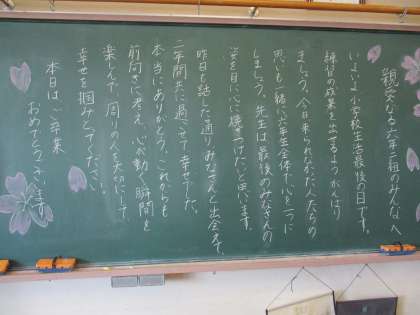 親愛なる六年二組のみんなへ
いよいよ小学校生活最後の日です。
練習の成果を出せるようがんばり
ましょう。今日来られなかった人たちの
思いも一緒に六年生全体で心を一つに
しましょう。先生は最後のみなさんの
姿を目に心に焼きつけたいと思います。
昨日も話した通りみなさんと出会えて、
二年間共に過ごせて幸せでした。
本当にありがとう。これからも
前向きに考え、心が動く瞬間を
楽しんで、周りの人を大切にして、
幸せを掴みとってください。
本日はご卒業
おめでとうございます。